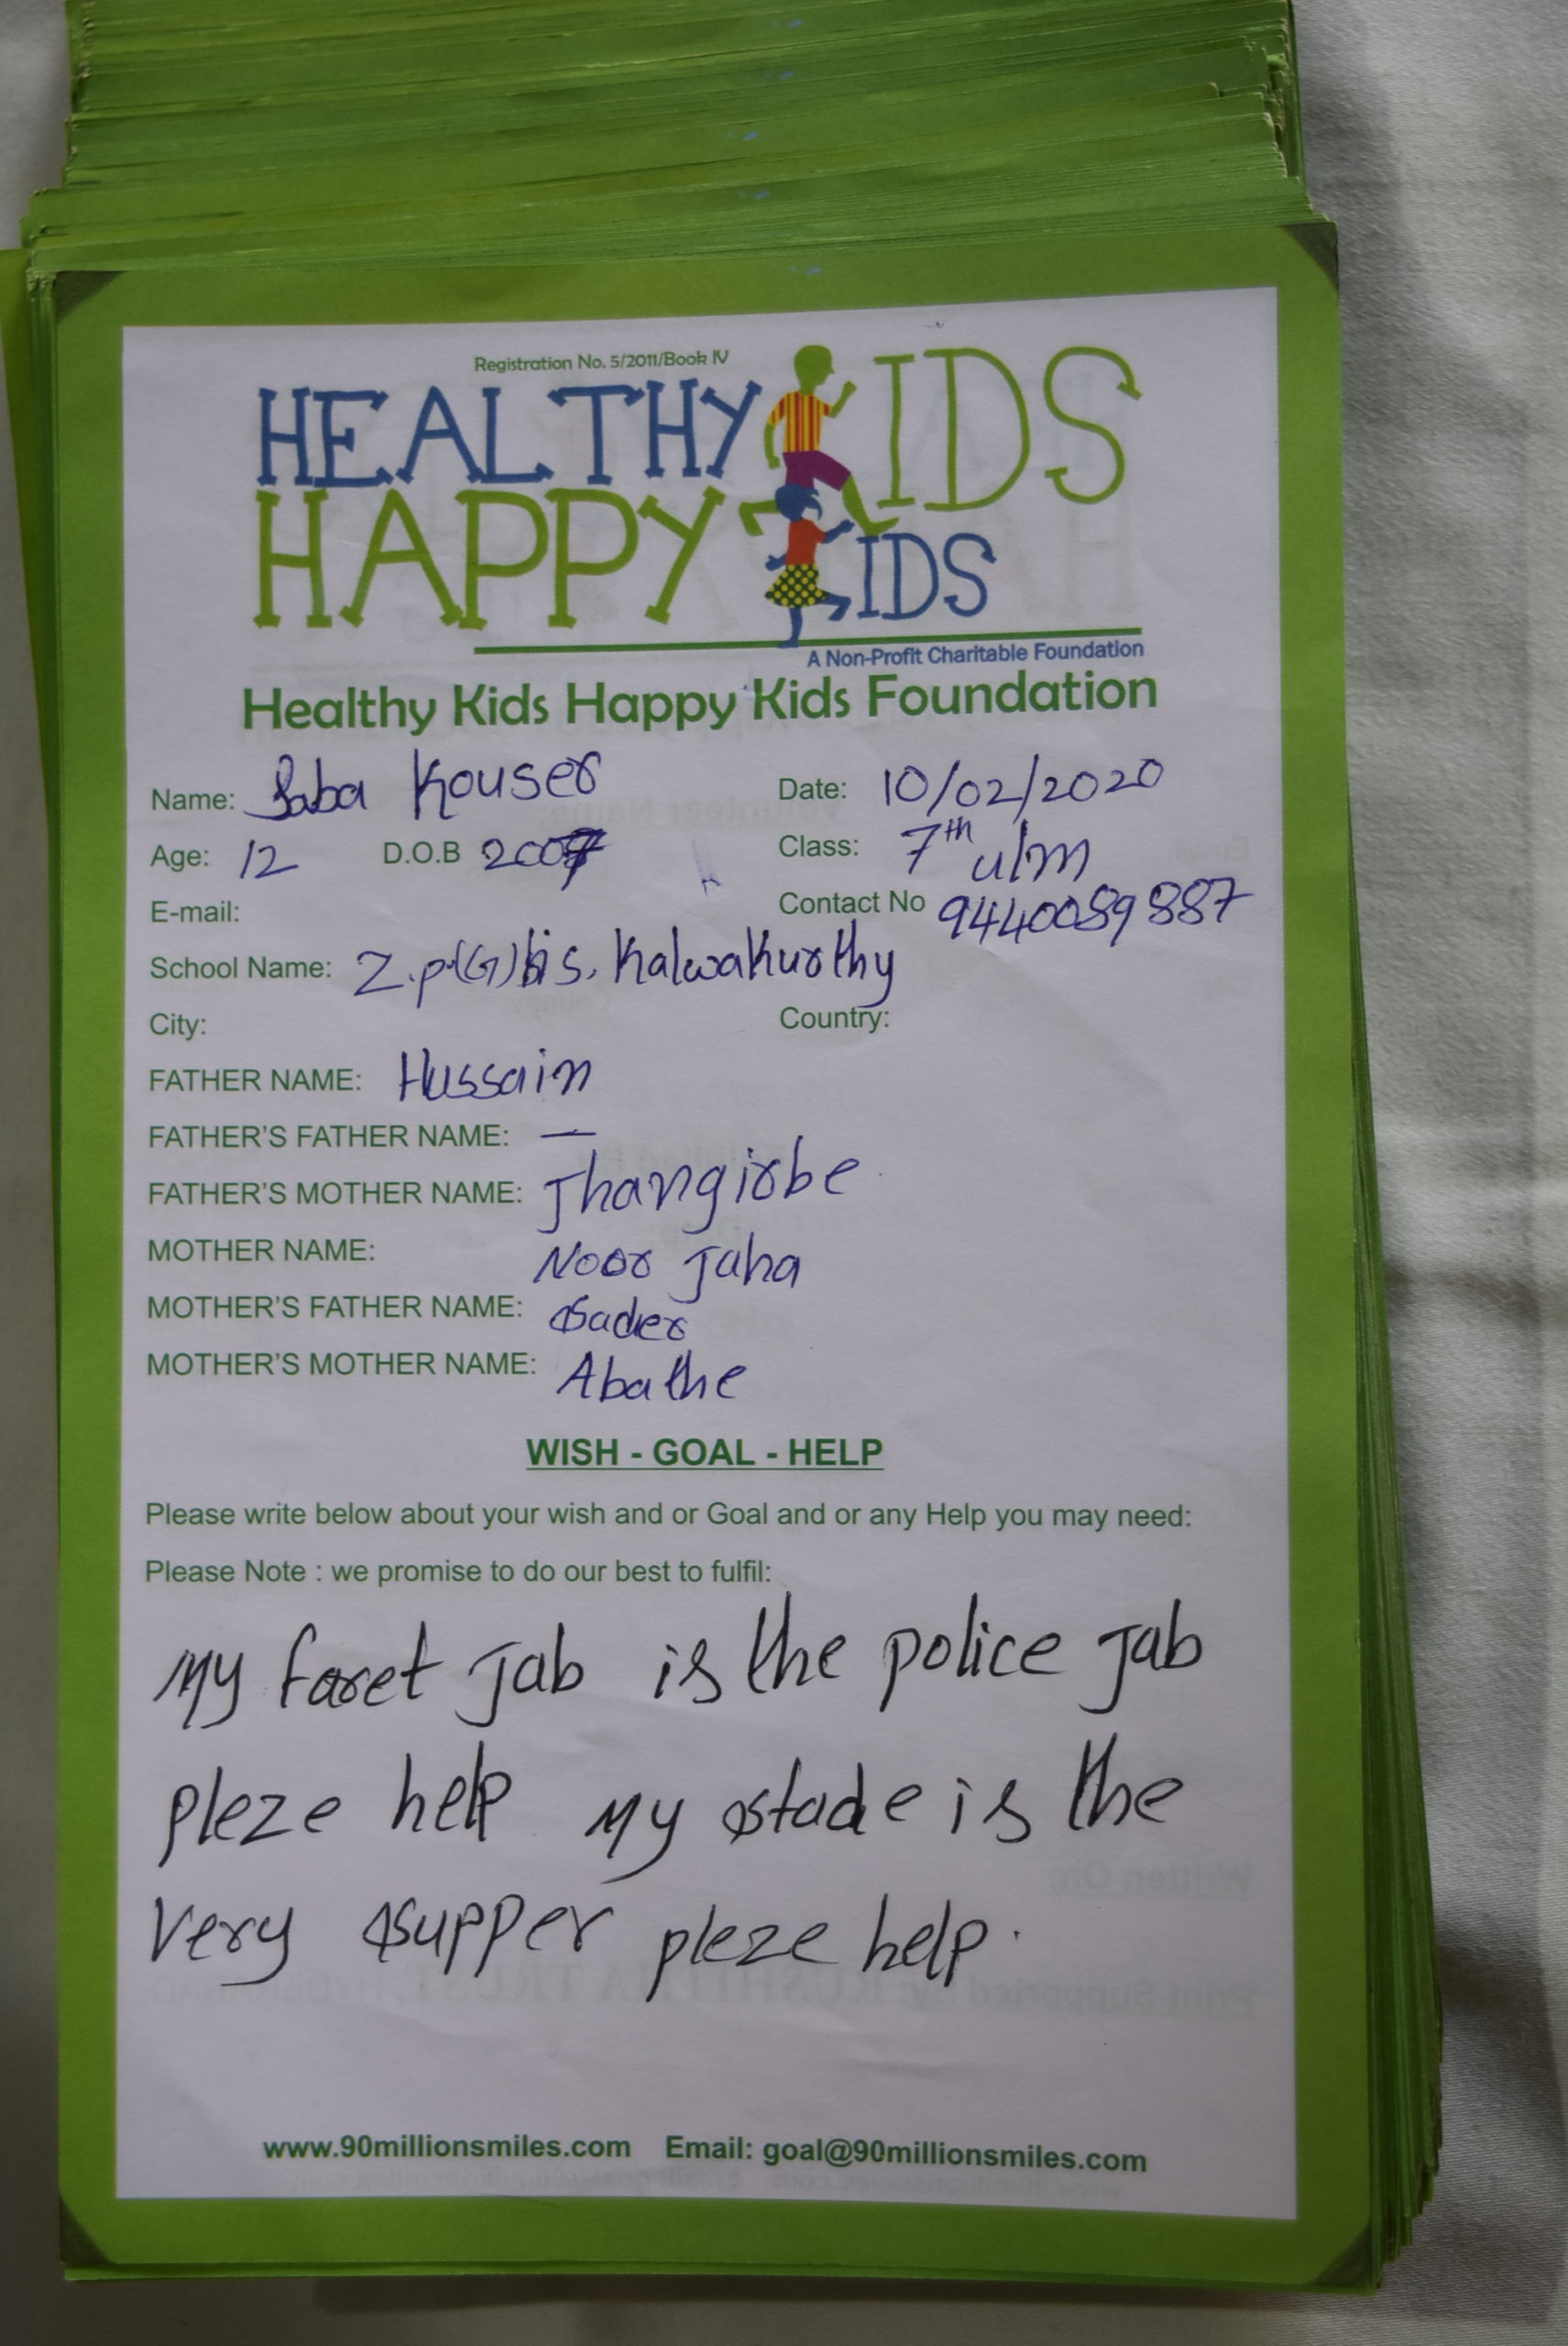 Registration No. 5/2011/Book IV
HEALTHY KIDS
HAPPY KIDS
A Non-Profit Charitable Foundation
Healthy Kids Happy Kids Foundation
Name: Saba Kouser Date: 10/02/2020
Age: 12 D.O.B 2007 Class: 7th u/m
E-mail: Contact No 9440089887
School Name: Z.p.(G)h s. Kalwakurthy
City: Country:
FATHER NAME: Hussain
FATHER'S FATHER NAME: —
FATHER'S MOTHER NAME: Jhangirbe
MOTHER NAME: Noor Jaha
MOTHER'S FATHER NAME: Sader
MOTHER'S MOTHER NAME: Abathe
WISH - GOAL - HELP
Please write below about your wish and or Goal and or any Help you may need:
Please Note : we promise to do our best to fulfil:
My faret Jab is the police Jab
pleze help my stade is the
very supper pleze help.
www.90millionsmiles.com Email: goal@90millionsmiles.com